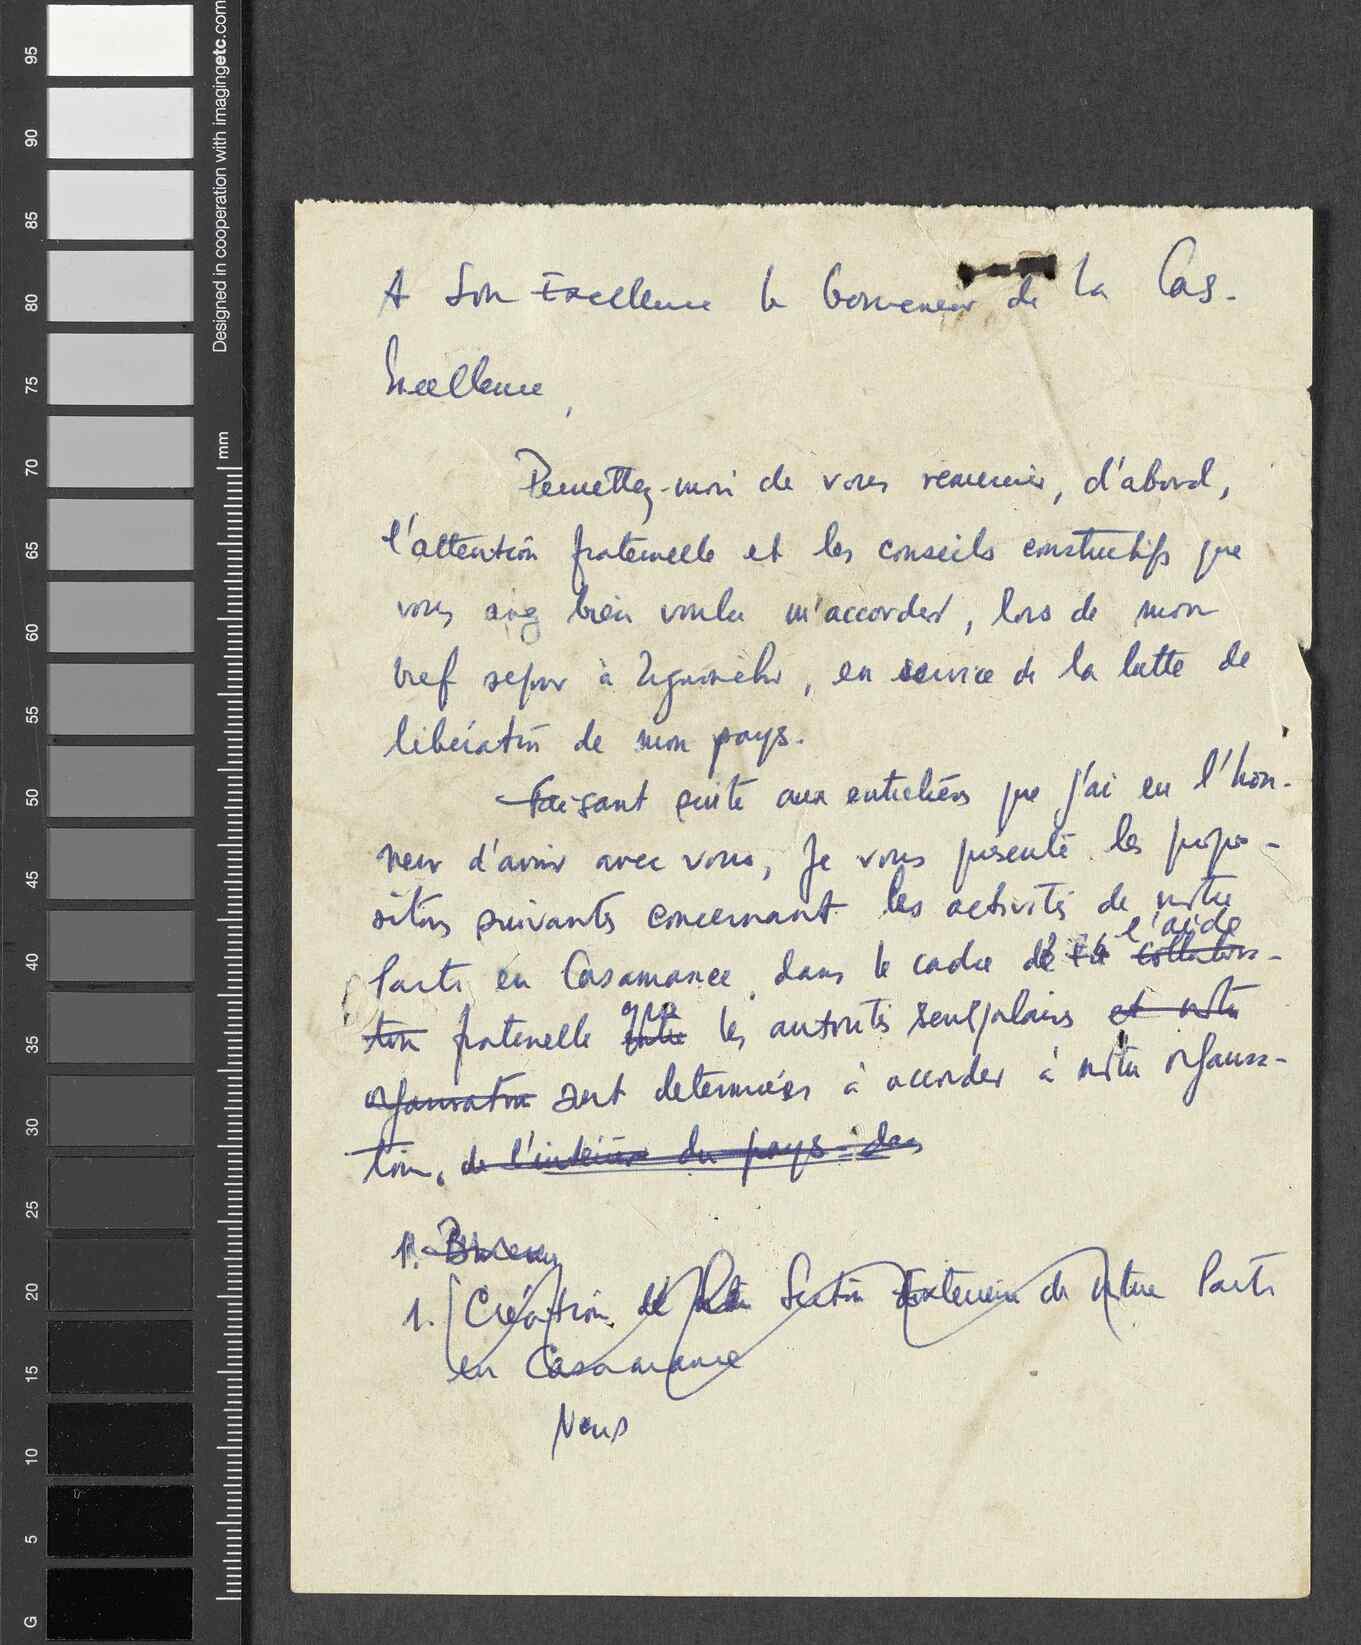 Designed in cooperation with imagingetc.com
mm
95
90
85
80
75
70
65
60
55
50
45
40
35
30
25
20
15
10
5
G
A Son Excellence le Gouverneur de la Cas.
Excellence,
Permettez-moi de vous remercier, d'abord,
l'attention fraternelle et les conseils constructifs que
vous avez bien voulu m'accorder, lors de mon
bref sejour à Ziguinchor, en service de la lutte de
libération de mon pays.
Faisant suite aux entretiens que j'ai eu l'hon-
neur d'avoir avec vous, je vous présente les propo-
sitions suivantes concernant les activités de notre
l'aide
Parti en Casamance, dans le cadre de la collabora-
que
tion fraternelle entre les autorités sénégalaises et notre
organisation sont determinées à accorder à notre organisa-
tion, de l'intérieur du pays. dans
1. Bureau
1. Création de Section Exterieure de notre Parti
en Casamance
Nous